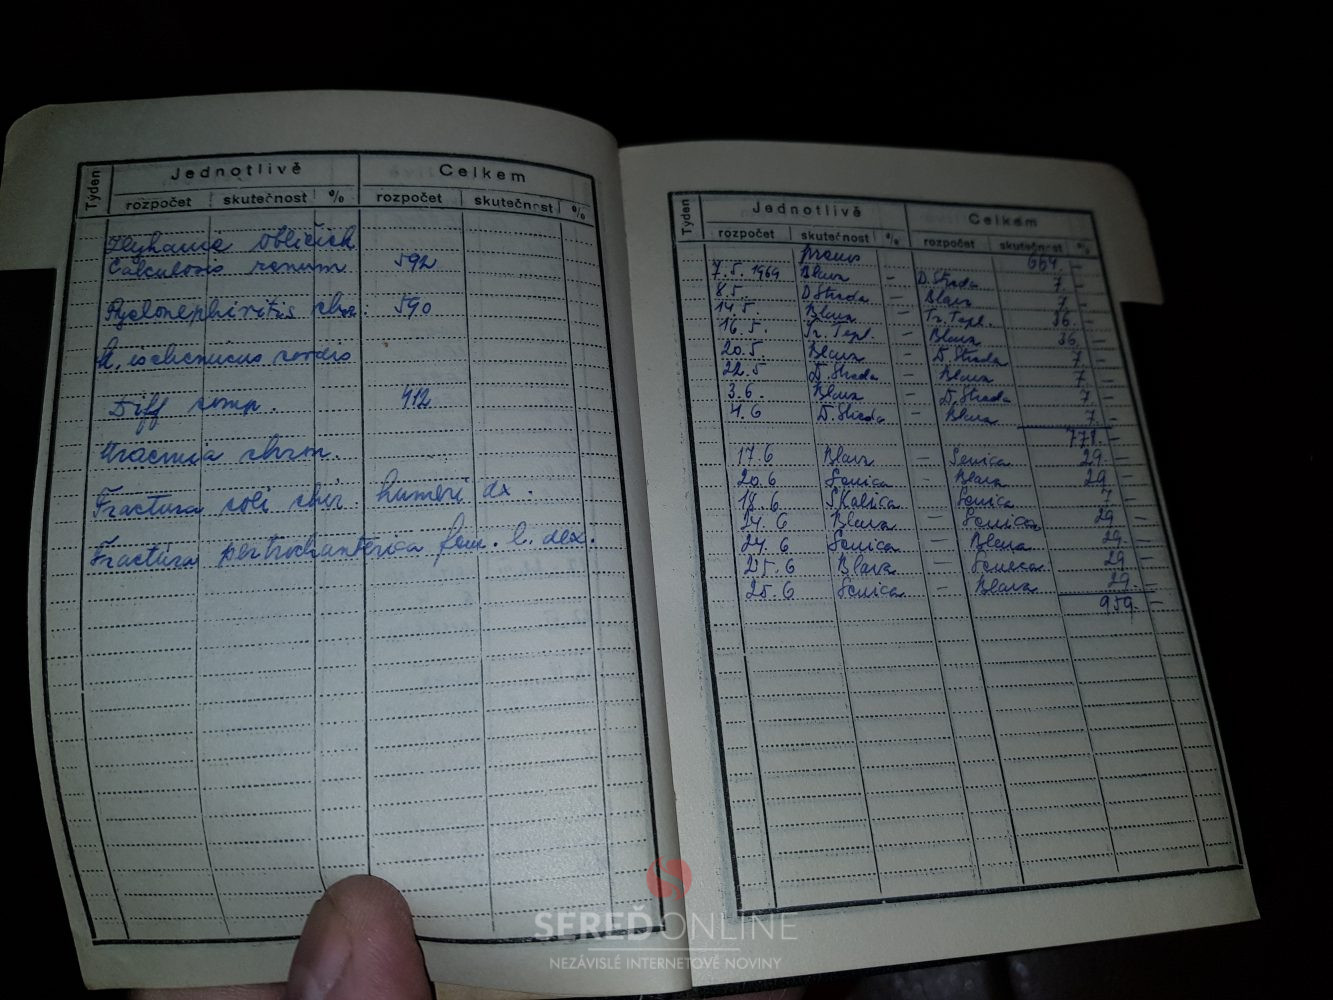 Týden Jednotlivě Celkem
rozpočet skutečnost % rozpočet skutečnost %
Zlyhanie obličiek
Calculosis renum 592
Pyelonephiritis chr. 590
M. ischemicus cordis
Diff comp. 412
Uraemia chron.
Fractura coli chir. humeri dx.
Fractura pertrochanterica fem. l. dex.
Týden Jednotlivě Celkem
rozpočet skutečnost % rozpočet skutečnost %
prenos 664.-
7.5.1969 Blava D. Streda 7.-
8.5 D Streda - Blava 7.-
14.5. Blava - Tr. Tepl. 36.-
16.5. Tr. Tepl. - Blava 36.-
20.5. Blava - D. Streda 7.-
22.5 D. Streda - Blava 7.-
3.6. Blava - D. Streda 7.-
4.6 D. Streda - Blava 7.-
778.-
17.6 Blava - Senica 29.-
20.6 Senica - Blava 29.-
18.6 Skalica Senica 7-
24.6 Blava - Senica 29-
24.6 Senica - Blava 29.-
25.6 Blava - Senica 29-
25.6 Senica - Blava 29.-
959.-
SEREĎ ONLINE
NEZÁVISLÉ INTERNETOVÉ NOVINY